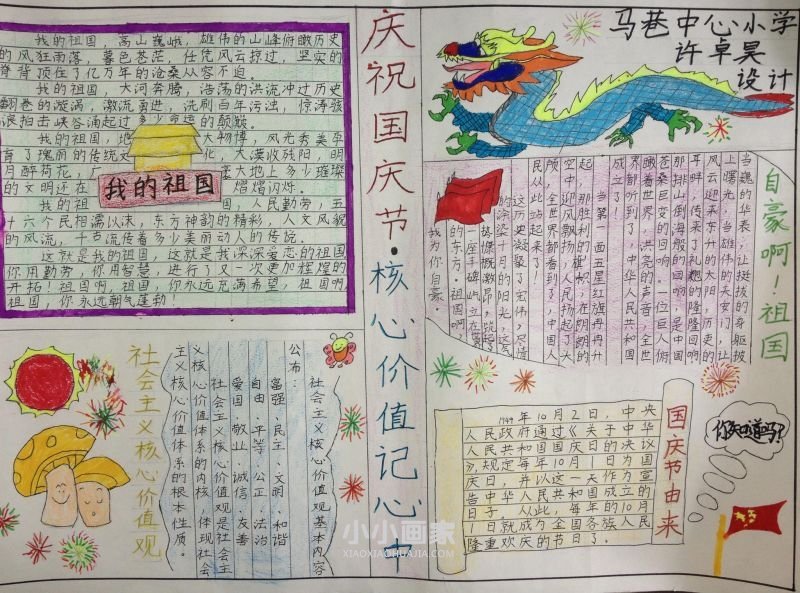 我的祖国，高山巍峨，雄伟的山峰俯瞰历史
的风狂雨落，暮色苍茫，任凭风云掠过，坚实的
脊背顶住了亿万年的沧桑从容不迫。
我的祖国 大河奔腾，浩荡的洪流冲过历史
翻卷的漩涡，激流勇进，洗刷百年污浊，惊涛骇
浪拍击峡谷涌起过多少命运的颠簸。
我的祖国，地 大物博，风光秀美孕
育了瑰丽的传统文 化，大漠收残阳，明
月醉荷花，广 大地上多少璀璨
的文明还在 熠熠闪烁。
我的祖 国，人民勤劳，五
十六个民相濡以沫，东方神韵的精彩，人文风貌
的风流，千古流传着多少美丽动人的传说。
这就是我的祖国，这就是我深深爱恋的祖国
你用勤劳，你用智慧，进行了又一次更加辉煌的
开拓！祖国啊，祖国，你永远充满希望，祖国啊
祖国，你永远朝气蓬勃！
我的祖国
庆祝国庆节·核心价值记心中
马巷中心小学
许卓昊
设计
自豪啊！祖国
当巍的华表，让挺拔的身躯披
上曙光，当雄伟的天安门，让
风云迎来东升的太阳，历史的
耳畔，传来了礼炮的隆隆回响
那排山倒海般的回响，是中国
苍桑巨变的回响。一位巨人俯
瞰着世界，洪亮的声音，全世
界都听到了，中华人民共和国
成立了
当第一面五星红旗冉冉升
起，那胜利的旗帜，在朗朗的
空中迎风飘扬，人民扬起了大
颅，全世界都看到了，中国人
民从此站起来了！
这历史凝聚了宏伟，尽情
的渲染十月的阳光，这民
的东方。祖国啊
我为你自豪。
社会主义核心价值观
社会主义核心价值观基本内容
公布：
富强、民主、文明、和谐
自由、平等、公正、法治
爱国、敬业、诚信、友善
社会主义核心价值观是社会主
义核心价值体系的内核，体现社会
主义核心价值体系的根本性质。
国庆节由来
1949年10月2日，中央
人民政府通过《关于中华
人民共和国国庆日的决议
》，规定每年10月1日为国
庆日，并以这一天作为宣
告中华人民共和国成立的
日子。从此，每年的10月
1日就成为全国各族人民
隆重欢庆的节日了。
你知道吗？
小小画家
XIAOXIAOHUAJIA.COM